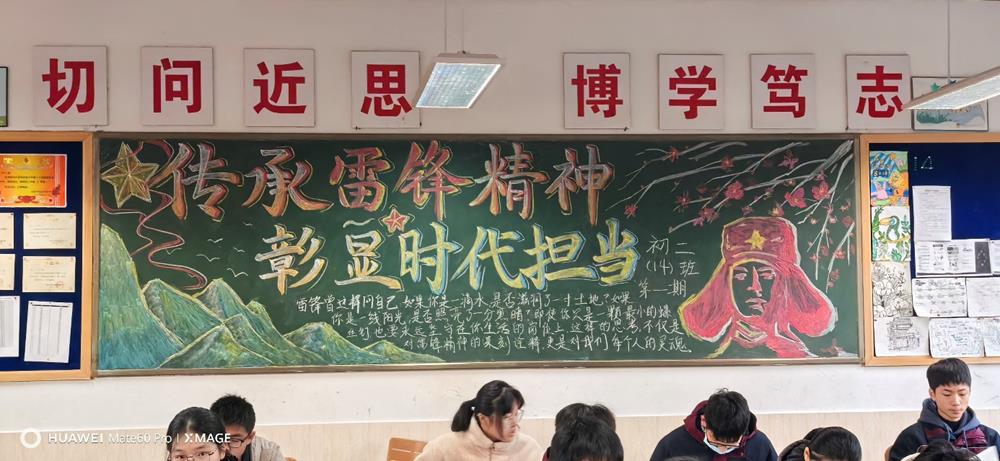 切问近思 博学笃志
传承雷锋精神
彰显时代担当
初二
(14)班
第一期
雷锋曾这样问自己,如果你是一滴水,是否滋润了一寸土地?如果
你是一线阳光,是否照亮了一分黑暗?即使你只是一颗最小的螺
丝钉也要永远坚守在你生活的岗位上。这样的思考,不仅是
对雷锋精神的深刻诠释,更是对我们每个人的灵魂
14
HUAWEI Mate60 Pro | XMAGE